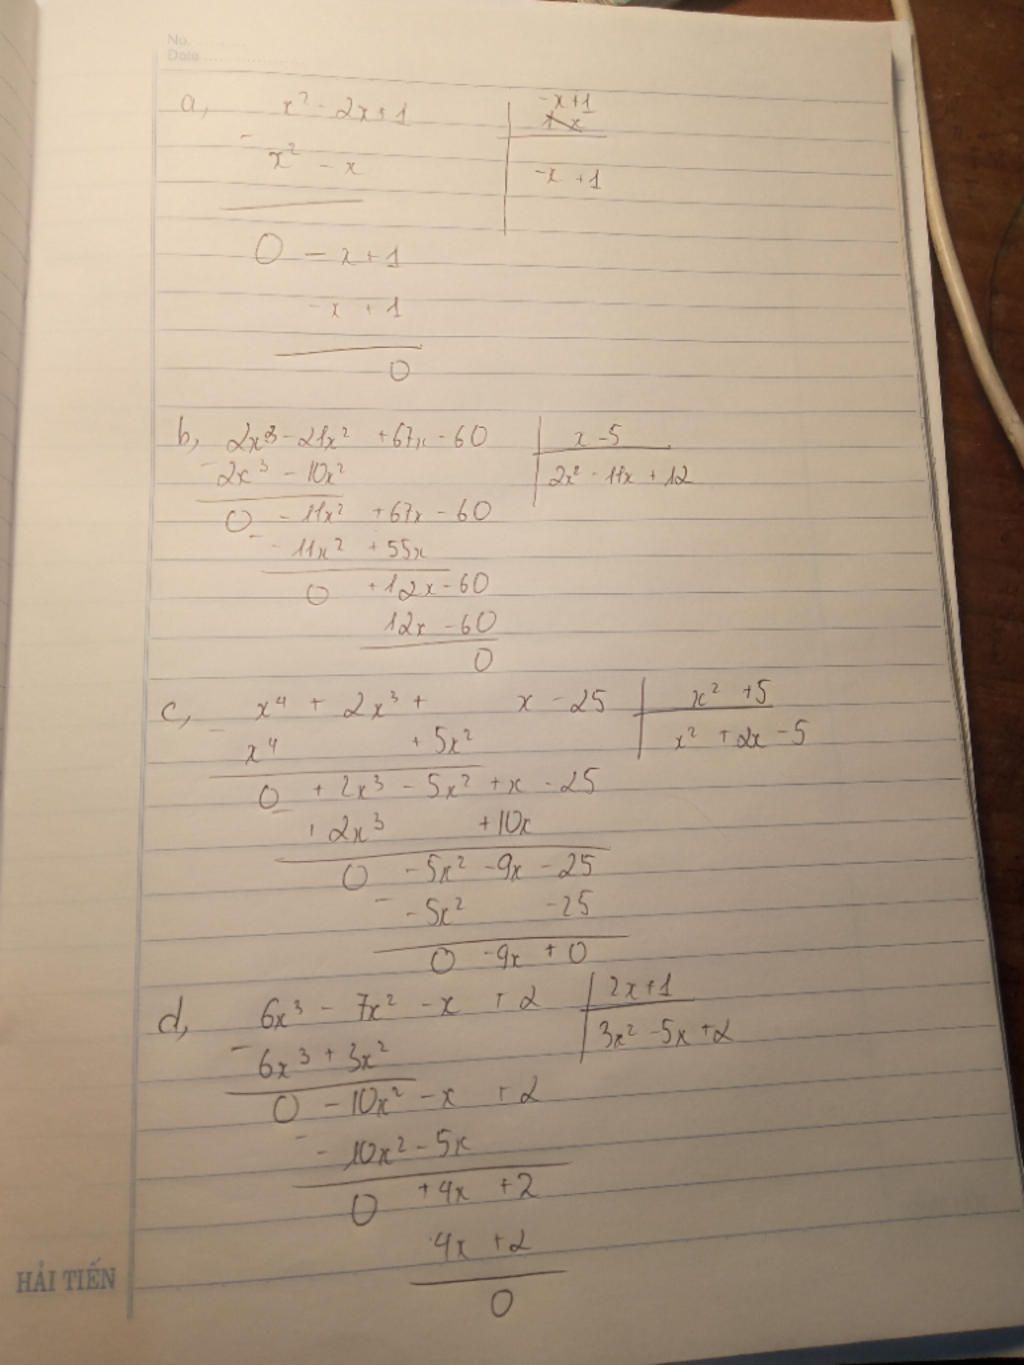 No.
Date
a, x² - 2x + 1 | -x + 1
- x² - x | -x + 1
0 - x + 1
-x + 1
0
b, 2x³ - 21x² + 67x - 60 | x - 5
- 2x³ - 10x² | 2x² - 11x + 12
0 - 11x² + 67x - 60
- - 11x² + 55x
0 + 12x - 60
12x - 60
0
c, x⁴ + 2x³ + x - 25 | x² + 5
- x⁴ + 5x² | x² + 2x - 5
0 + 2x³ - 5x² + x - 25
- + 2x³ + 10x
0 - 5x² - 9x - 25
- - 5x² - 25
0 - 9x + 0
d, 6x³ - 7x² - x + 2 | 2x + 1
- 6x³ + 3x² | 3x² - 5x + 2
0 - 10x² - x + 2
- - 10x² - 5x
0 + 4x + 2
4x + 2
0
HẢI TIẾN